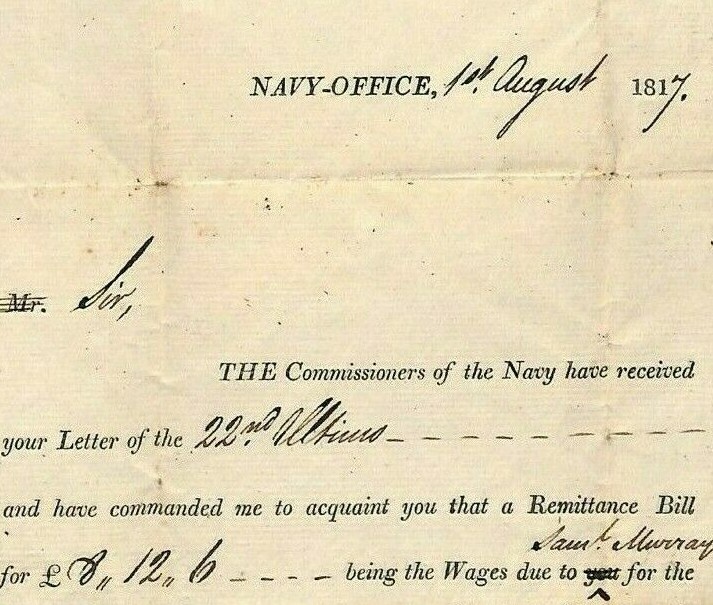 NAVY-OFFICE, 1st. August 1817.
Mr. Sir,
THE Commissioners of the Navy have received
your Letter of the 22nd. Ultimo - - - - - - - - -
and have commanded me to acquaint you that a Remittance Bill
Saml. Murray
for £ 8,, 12,, 6 - - - - being the Wages due to you for the